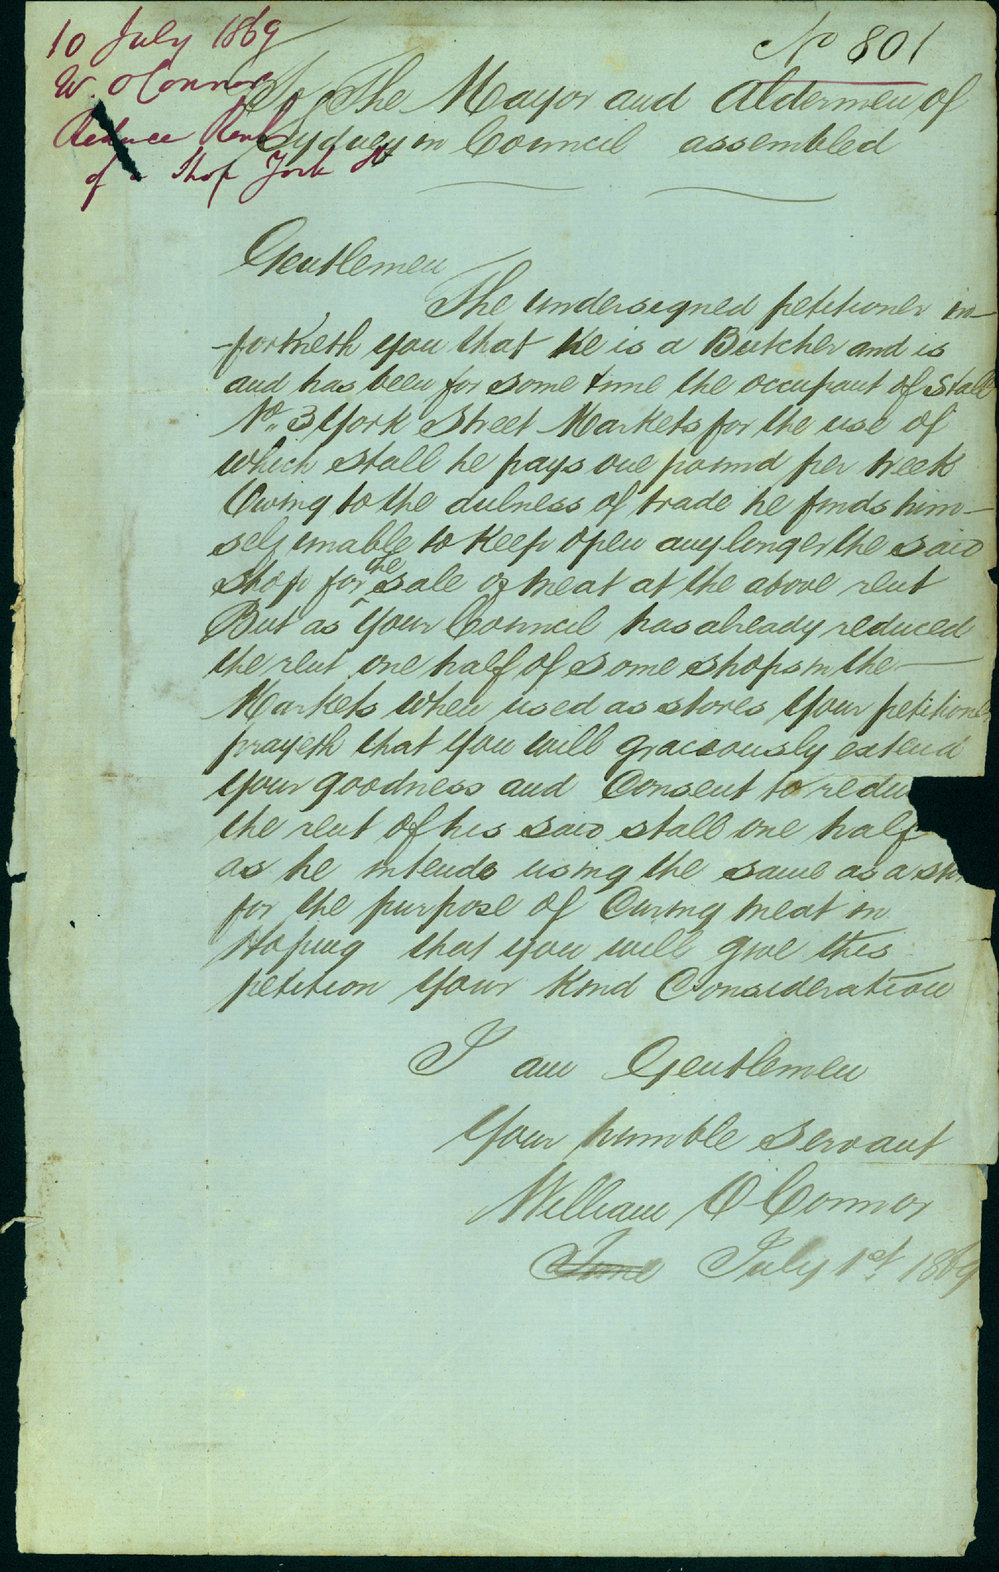 10 July 1869
W. O'Connor
Reduce Rent
of a Shop York St
No 801
To The Mayor and Aldermen of
Sydney in Council assembled
Gentlemen
The undersigned petitioner in-
-formeth you that he is a Butcher and is
and has been for some time the occupant of Stall
No. 3 York Street Markets for the use of
which stall he pays one pound per week
Owing to the dulness of trade he finds him-
self unable to keep open any longer the said
shop for the sale of meat at the above rent
But as Your Council has already reduced
the rent one half of some shops in the
Markets when used as stores Your petitioner
prayeth that you will graciously extend
Your goodness and Consent to redu
the rent of his said stall one half
as he intends using the same as a sto
for the purpose of Curing meat in
Hoping that you will give this
petition Your kind Consideration
I am Gentlemen
Your humble servant
William O'Connor
June July 1st 1869